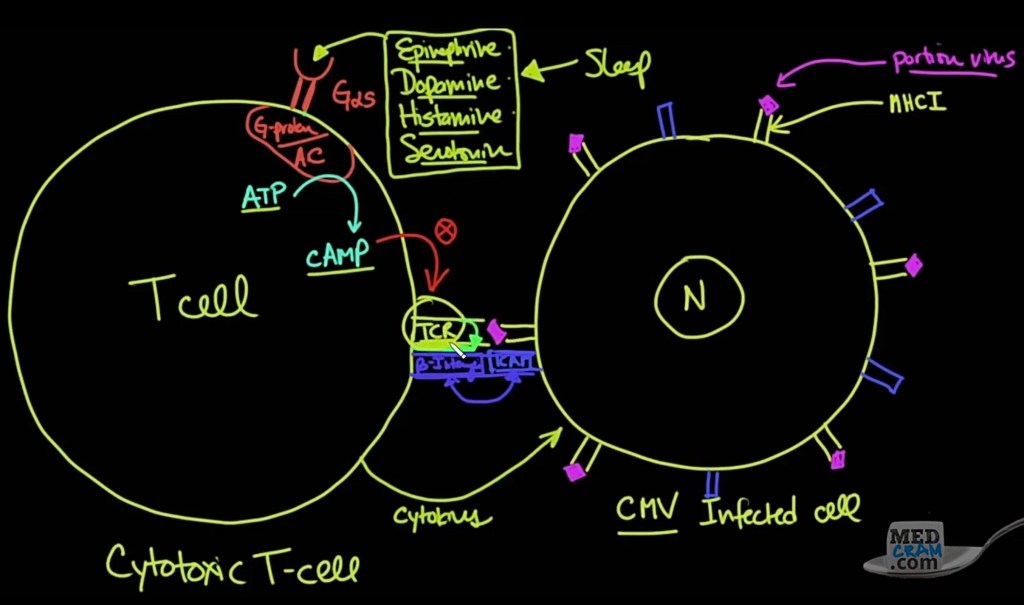 Epinephrine
Dopamine
Histamine
Serotonin
Sleep
portion virus
MHCI
Gαs
G-protein
AC
ATP
cAMP
T cell
N
TCR
ICAM
cytokines
CMV Infected cell
Cytotoxic T-cell
MED
CRAM
.com